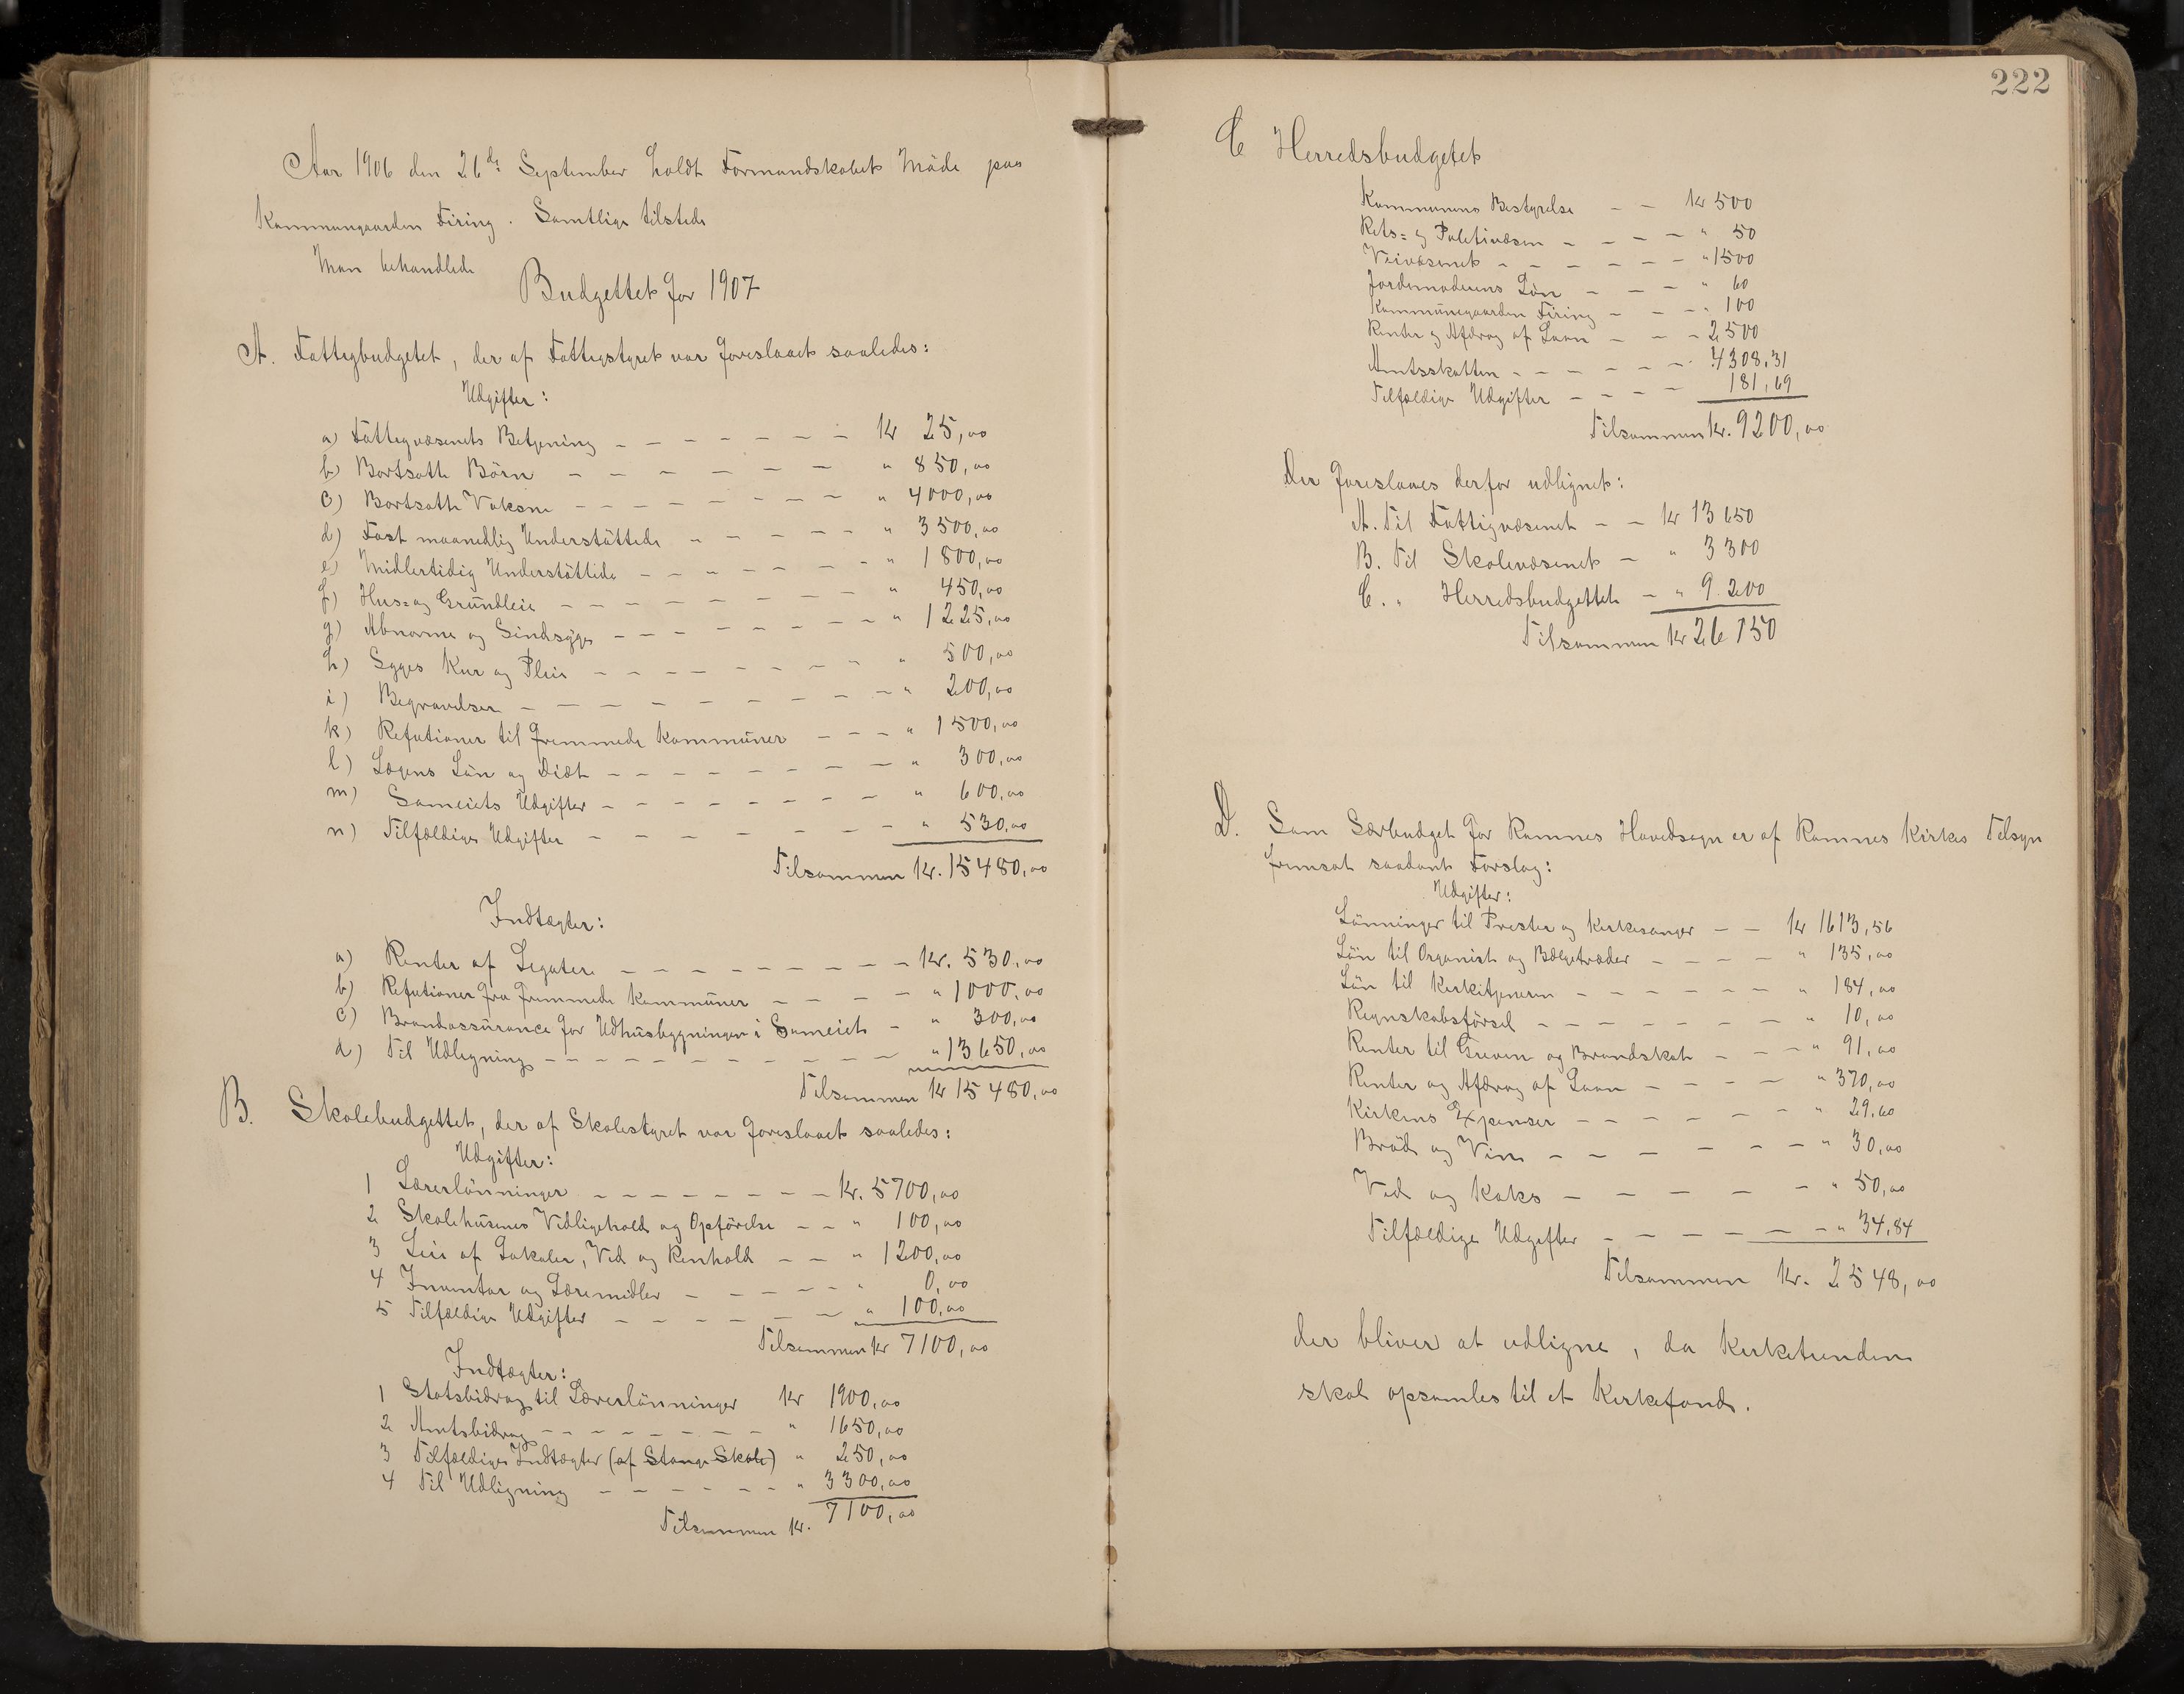 Aar 1906 den 26de September holdt Formandskabet Møde paa
Kommungaarden Firing. Samtlige tilstede
Man behandlede
Budgettet for 1907
A. Fattigbudgetet, der af Fattigstyret var foreslaaet saaledes:
Udgifter:
a) Fattigvæsenets Betjening — — — — — — — Kr 25,00
b) Bortsatte Börn — — — — — — " 850,00
c) Bortsatte Voksne — — — — — — " 4000,00
d) Fast maanedlig Understöttede — — — — — " 3500,00
e) Midlertidig Understöttede — — — — — — " 1800,00
f) Hus= og Grundleie — — — — — — — " 450,00
g) Abnorme og Sindsyge — — — — — — — " 1225,00
h) Syges Kur og Pleie — — — — — — " " 500,00
i) Begravelser — — — — — — — — " 200,00
k) Refutioner til fremmede Kommuner — — — " 1500,00
l) Lægens Lön og Diæt — — — — — — — " 300,00
m) Sameiets Udgifter — — — — — — — " 600,00
n) Tilfældige Udgifter — — — — — — — " 530,00
Tilsammen Kr. 15480,00
Indtægter:
a) Renter af Legater — — — — — — — — Kr. 530,00
b) Refutioner fra fremmede Kommuner — — — — " 1000,00
c) Brandassurance for Udhusbygningen i Sameiet — " 300,00
d) Til Udligning — — — — — — — — — — " 13650,00
Tilsammen Kr 15480,00
B. Skolebudgettet, der af Skolestyret var foreslaaet saaledes:
Udgifter:
1 Lærerlönninger — — — — — — — — Kr. 5700,00
2 Skolehusenes Vedligehold og Opförelse — — " 100,00
3 Leie af Lokaler, Ved og Renhold — — " 1200,00
4 Inventar og Læremidler — — — — — " 0,00
5 Tilfældige Udgifter — — — — — — " 100,00
Tilsammen Kr 7100,00
Indtægter:
1 Statsbidrag til Lærerlönninger Kr 1900,00
2 Amtsbidrag — — — — — — — — " 1650,00
3 Tilfældige Indtægter (af Stange Skole) " 250,00
4 Til Udligning — — — — — — " 3300,00
Tilsammen Kr. 7100,00
222
C Herredsbudgetet
Kommunens Bestyrelse — — Kr 500
Rets= og Politivæsen — — — — " 50
Veivæsenet — — — — — — — " 1500
Jordemoderens Lön — — — " 60
Kommunegaarden Firing — — — " 100
Renter og Afdrag af Laan — — — 2500
Amtsskatten — — — — — — — " 4308,31
Tilfældige Udgifter — — — — 181,69
Tilsammen Kr. 9200,00
Der foreslaaes derfor udlignet:
A. Til Fattigvæsenet — — Kr 13650
B. Til Skolevæsenet — " 3300
C. " Herredsbudgettet — " 9.200
Tilsammen Kr 26150
D. Som Særbudget for Ramnes Hovedsogn er af Ramnes Kirkes Tilsyn
fremsat saadant Forslag:
Udgifter:
Lönninger til Prester og Kirkesanger — — Kr 1613,56
Lön til Organist og Bælgetræder — — — — " 135,00
Lön til Kirketjeneren — — — — — — " 184,00
Regnskabsförsel — — — — — — — " 10,00
Renter til Greven og Brandskat — — — " 91,00
Renter og Afdrag af Laan — — — — " 370,00
Kirkens Expenser — — — — — — " 29,60
Bröd og Vin — — — — — — " 30,00
Ved og Koks — — — — — " 50,00
Tilfældige Udgifter — — — — — — " 34,84
Tilsammen Kr. 2548,00
der bliver at udligne, da Kirketienden
skal opsamles til et Kirkefond.